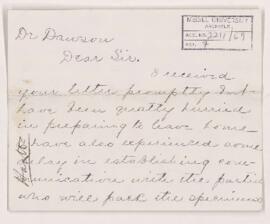 McGILL UNIVERSITY
ARCHIVES
ACC. NO. 2211/69
REF. 7
Dr Dawson
Dear Sir.
I received
your letter promptly but
have been greatly hurried
in preparing to leave home
have also experienced some
delay in establishing com-
munication with the parties
who will pack the specimens